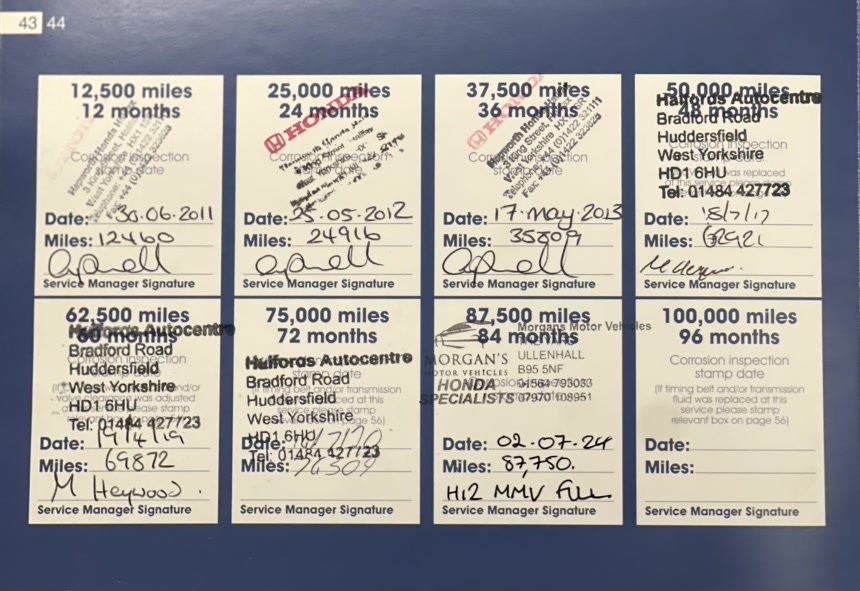 43 44
12,500 miles
12 months
Hepworth Honda Halifax
3 King Street, Halifax
West Yorkshire HX1 1SR
Corrosion inspection
stamp date
Date: 30.06.2011
Miles: 12460
Service Manager Signature
25,000 miles
24 months
HONDA
Corrosion inspection
stamp date
Date: 25.05.2012
Miles: 24916
Service Manager Signature
37,500 miles
36 months
HONDA
Hepworth Honda Halifax
3 King Street, Halifax
West Yorkshire HX1 1SR
Telephone: +44 (0)1422 321111
Fax: +44 (0)1422 323823
Corrosion inspection
stamp date
Date: 17.may.2013
Miles: 35809
Service Manager Signature
50,000 miles
48 months
Halfords Autocentre
Bradford Road
Huddersfield
West Yorkshire
HD1 6HU
Tel: 01484 427723
Date: 18/7/17
Miles: 62921
Service Manager Signature
62,500 miles
60 months
Halfords Autocentre
Bradford Road
Huddersfield
West Yorkshire
HD1 6HU
Tel: 01484 427723
Date: 19/4/19
Miles: 69872
M Heywood.
Service Manager Signature
75,000 miles
72 months
Halfords Autocentre
Bradford Road
Huddersfield
West Yorkshire
HD1 6HU
Tel: 01484 427723
Date:
Miles: 76309
Service Manager Signature
87,500 miles
84 months
Morgans Motor Vehicles
MORGAN'S
MOTOR VEHICLES
HONDA
SPECIALISTS
ULLENHALL
B95 5NF
01564 793033
07970 108951
Date: 02.07.24
Miles: 87,750.
H12 MMV Full
Service Manager Signature
100,000 miles
96 months
Corrosion inspection
stamp date
(If timing belt and/or transmission
fluid was replaced at this
service please stamp
relevant box on page 56)
Date:
Miles:
Service Manager Signature